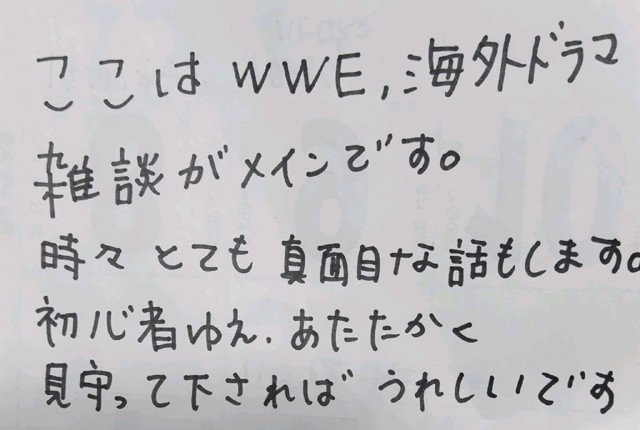 ここは WWE,海外ドラマ
雑談がメインです。
時々 とても 真面目な話もします。
初心者ゆえ、あたたかく
見守って下されば うれしいです